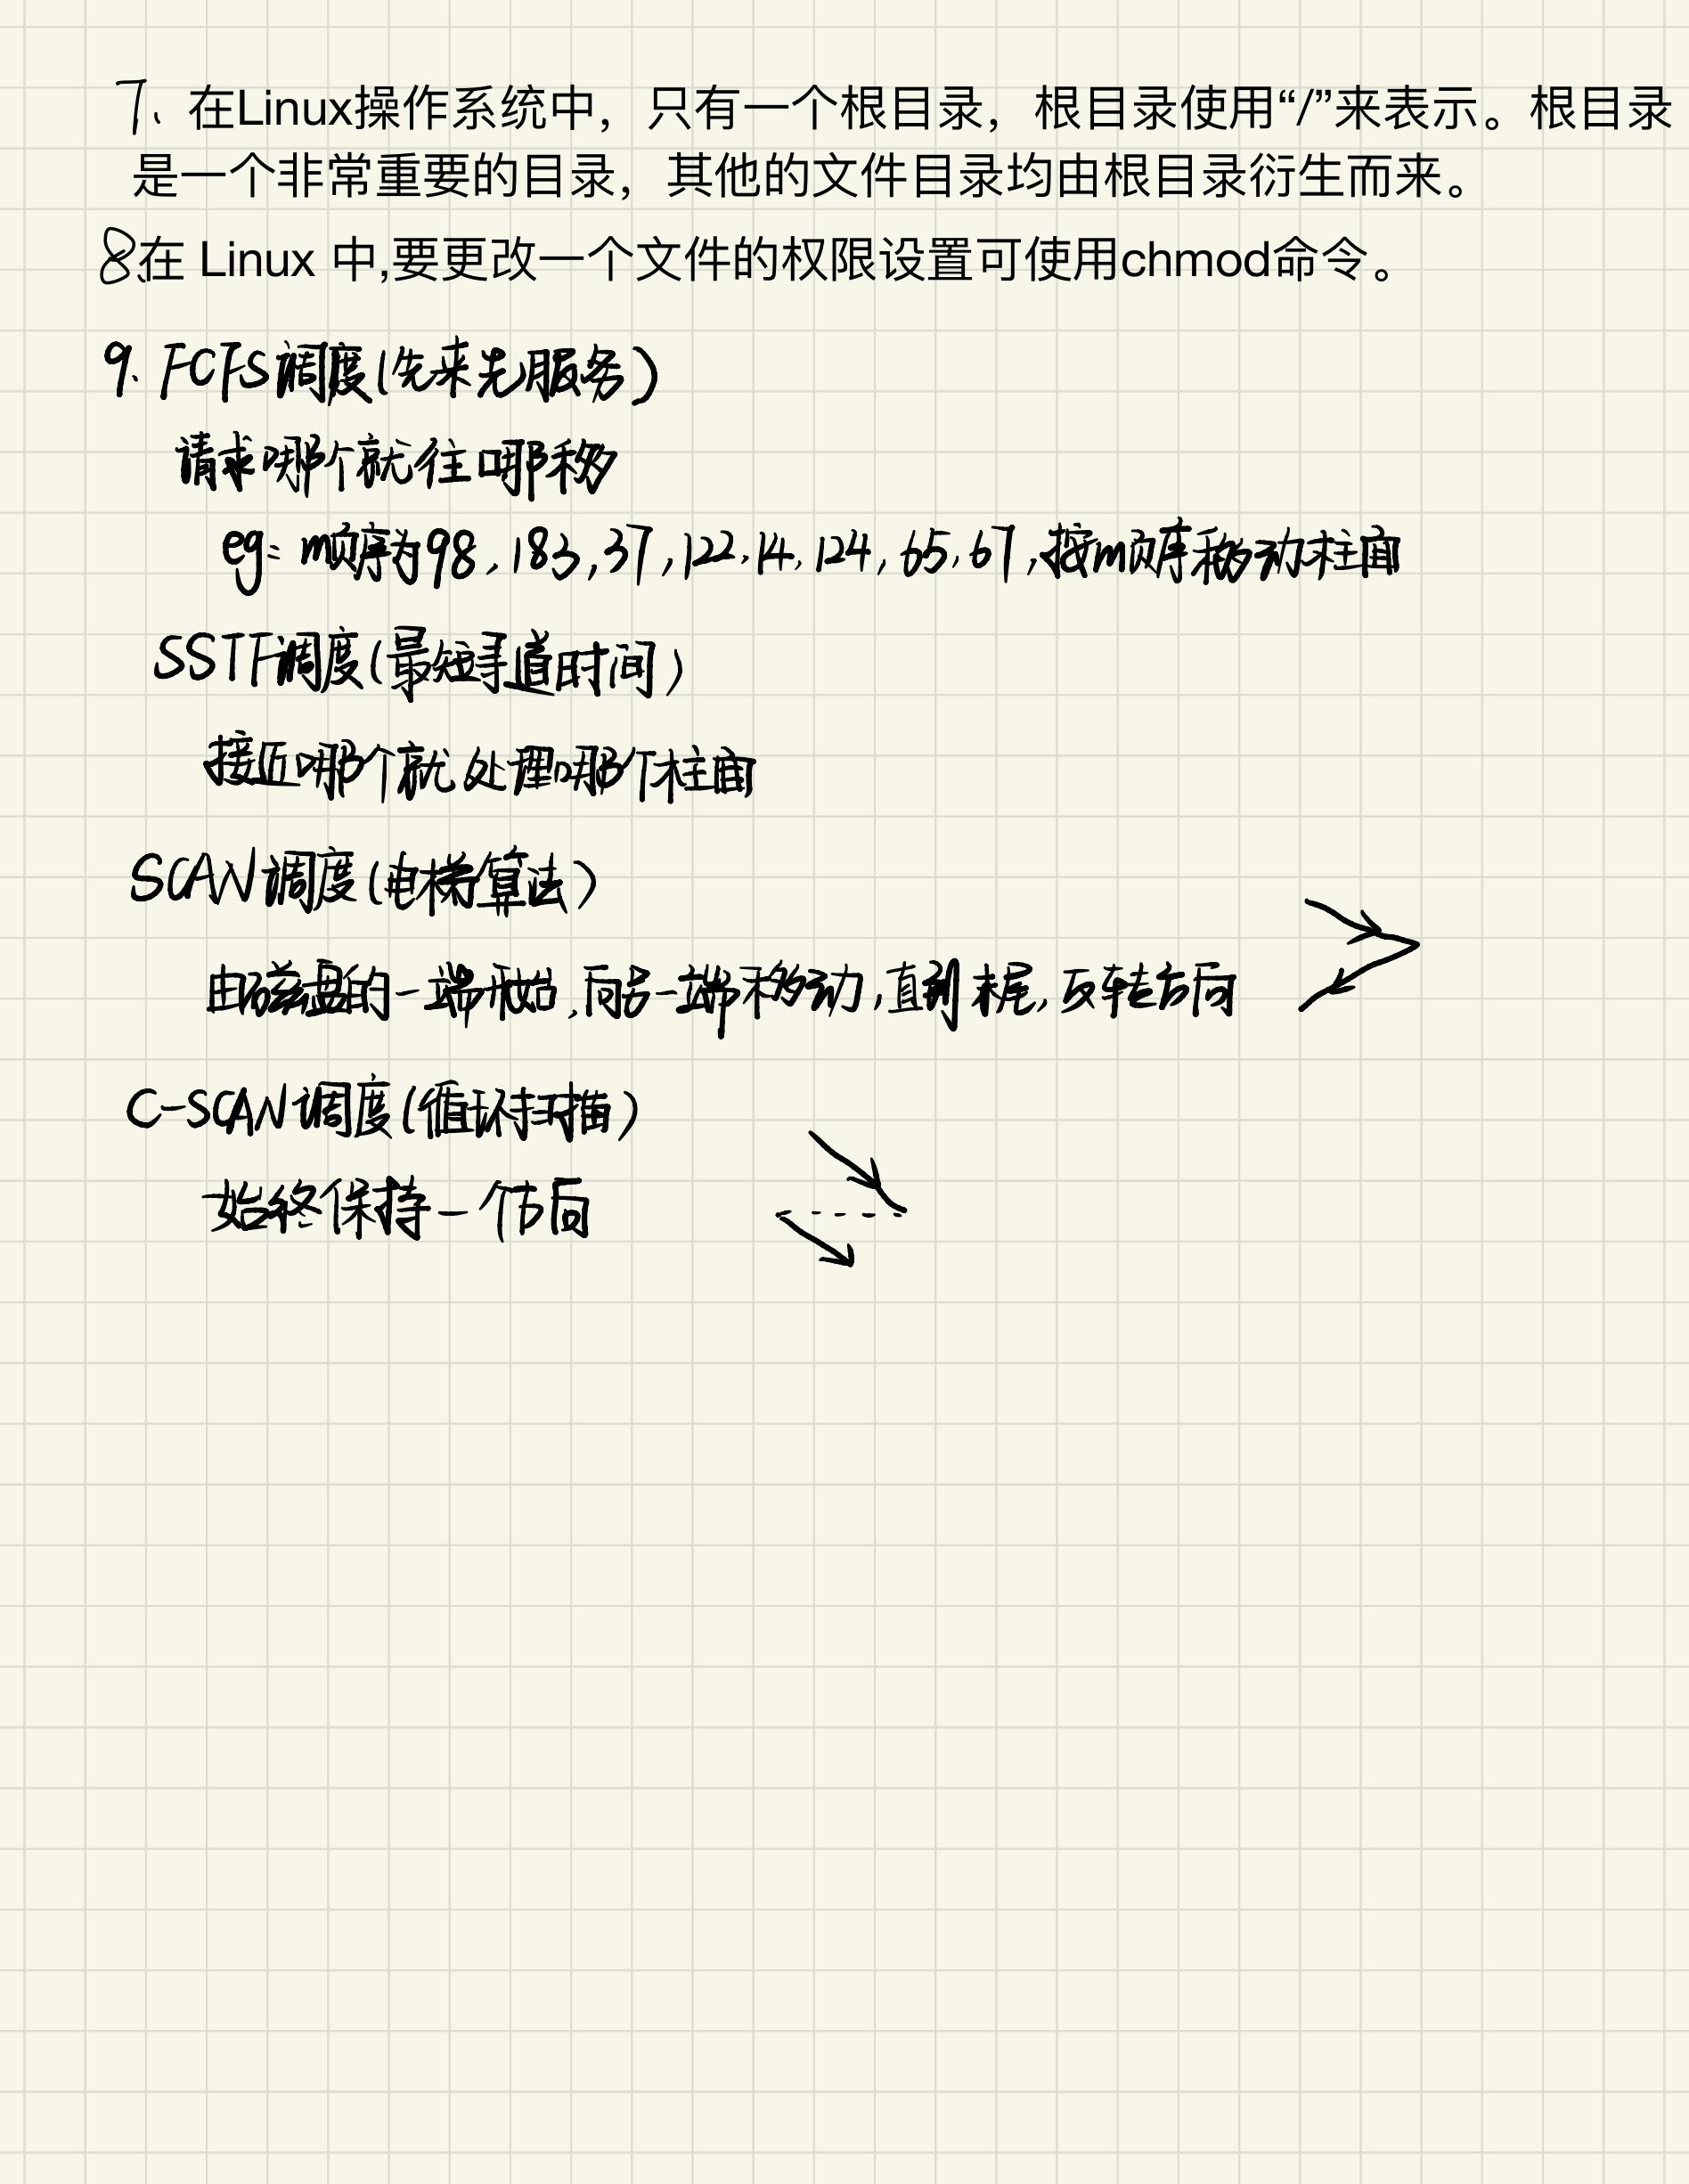 7、在Linux操作系统中，只有一个根目录，根目录使用“/”来表示。根目录
是一个非常重要的目录，其他的文件目录均由根目录衍生而来。
8.在 Linux 中,要更改一个文件的权限设置可使用chmod命令。
9. FCFS调度(先来先服务)
请求哪个就往哪移
eg: 顺序为98,183,37,122,14,124,65,67,按顺序移动柱面
SSTF调度(最短寻道时间)
接近哪个就处理哪个柱面
SCAN调度(电梯算法)
由磁盘的一端开始,向另一端移动,直到末尾,反转方向
C-SCAN调度(循环扫描)
始终保持一个方向